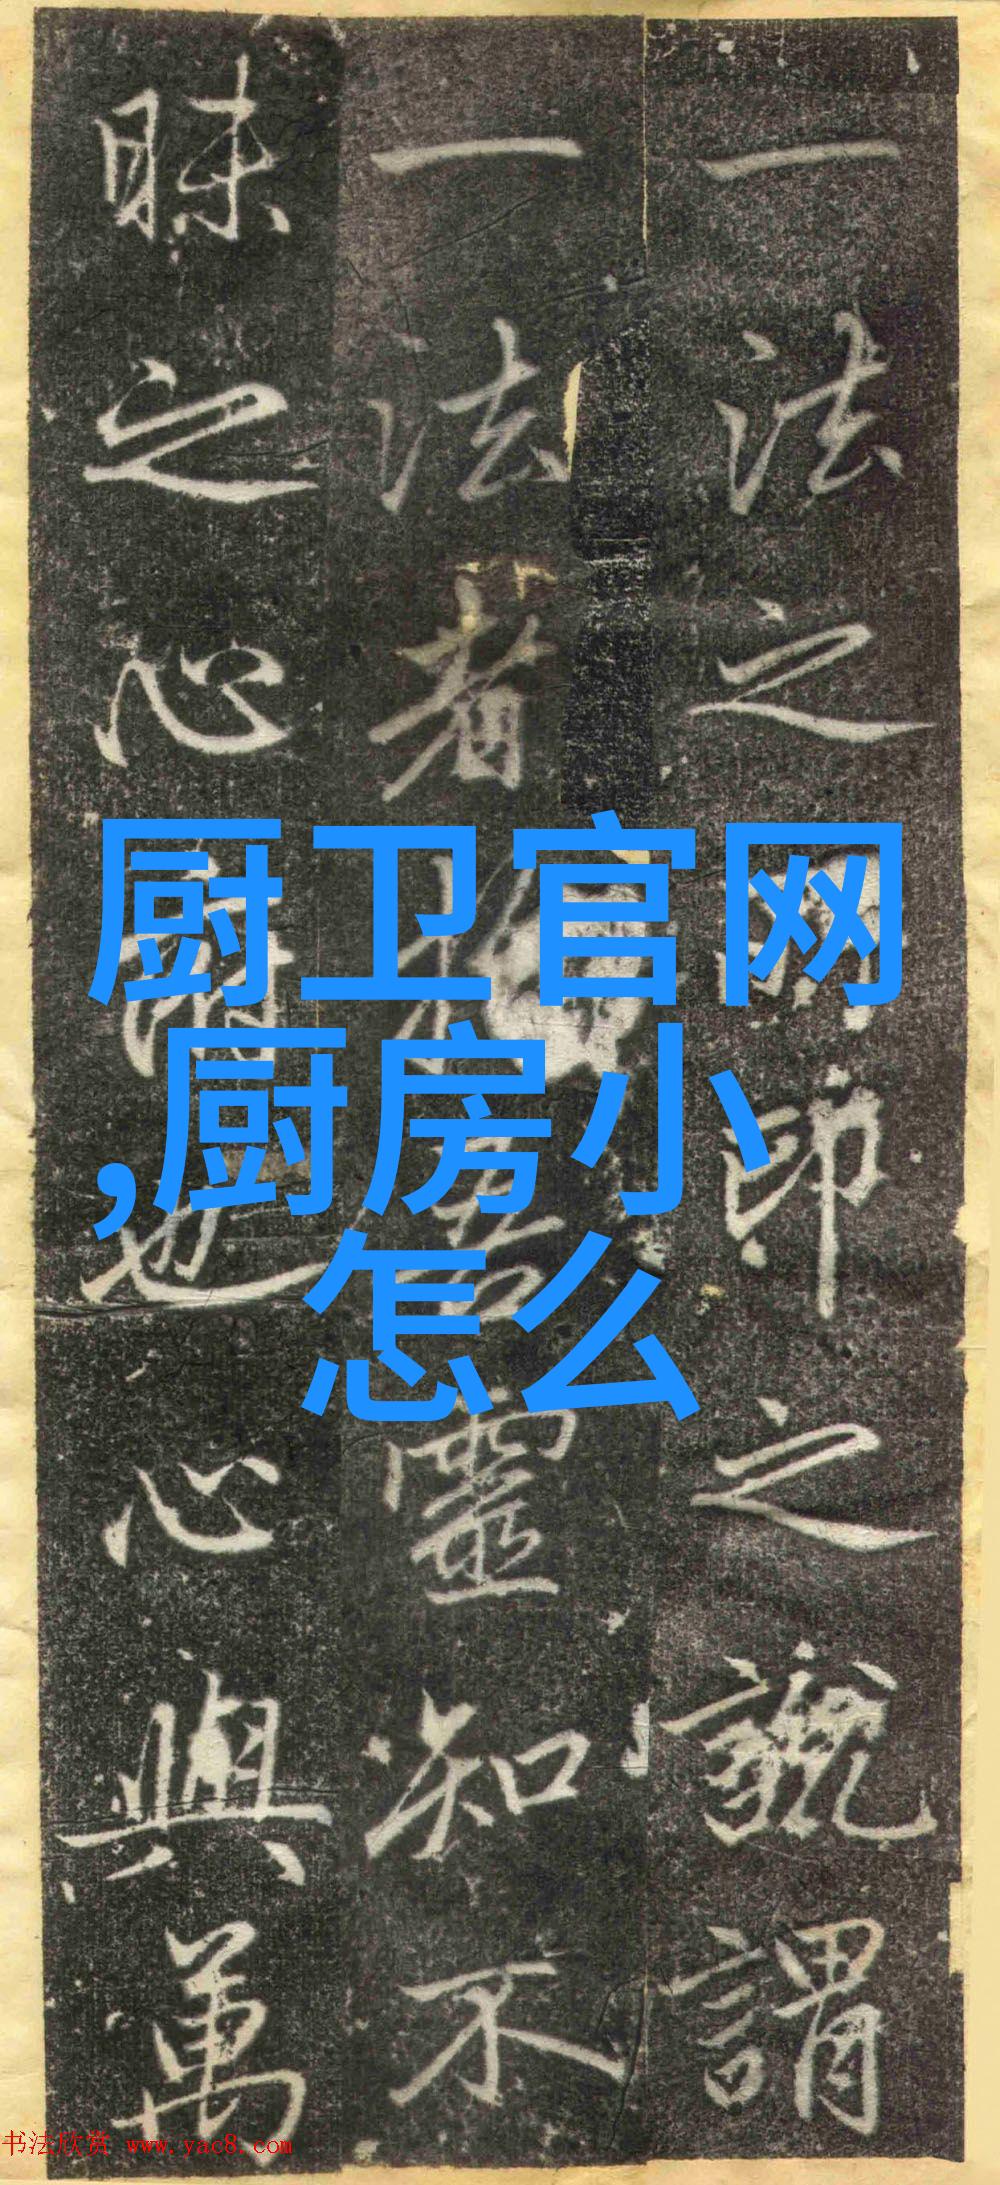 一法之印之謂
一法者靈知不
昧之心也心與萬
厨卫官网
,厨房小
怎么
书法欣赏 www.yac8.com